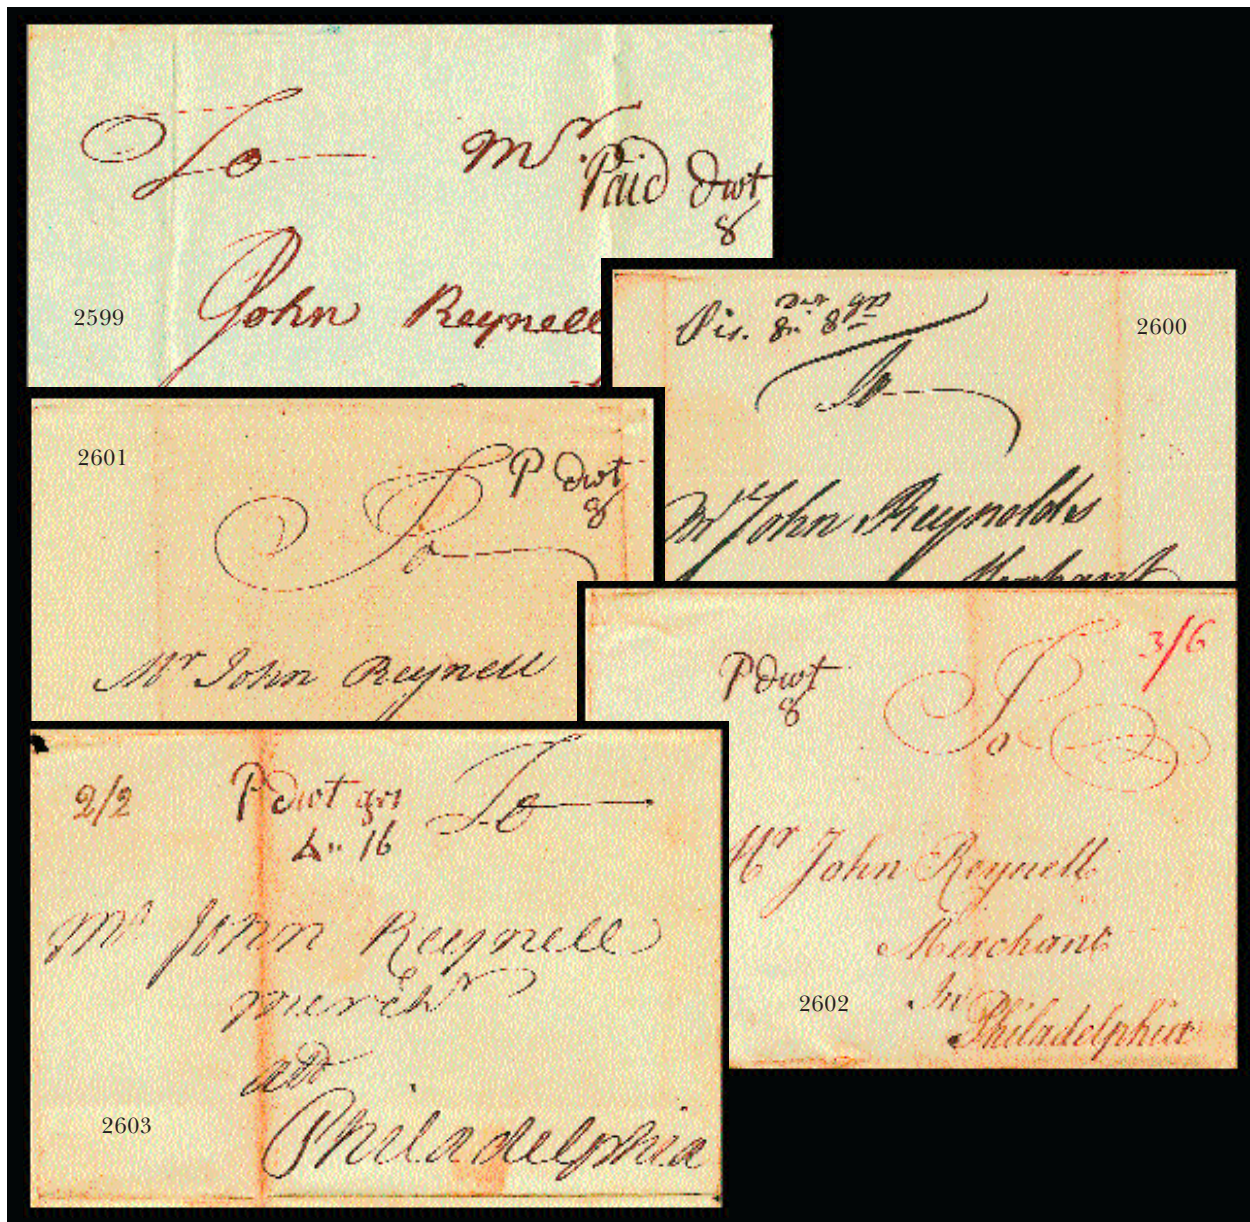 To Mr
Paid dwt
8
John Reynell
2599
dwt grs
8.. 8
2600
To
Mr John Reynolds
Merchant
2601
To
P dwt
8
Mr John Reynell
P dwt
8
To
3/6
Mr John Reynell
Merchant
In
Philadelphia
2602
2/2
P dwt grs
4.. 16
To
Mr John Reynell
merchr
att
Philadelphia
2603